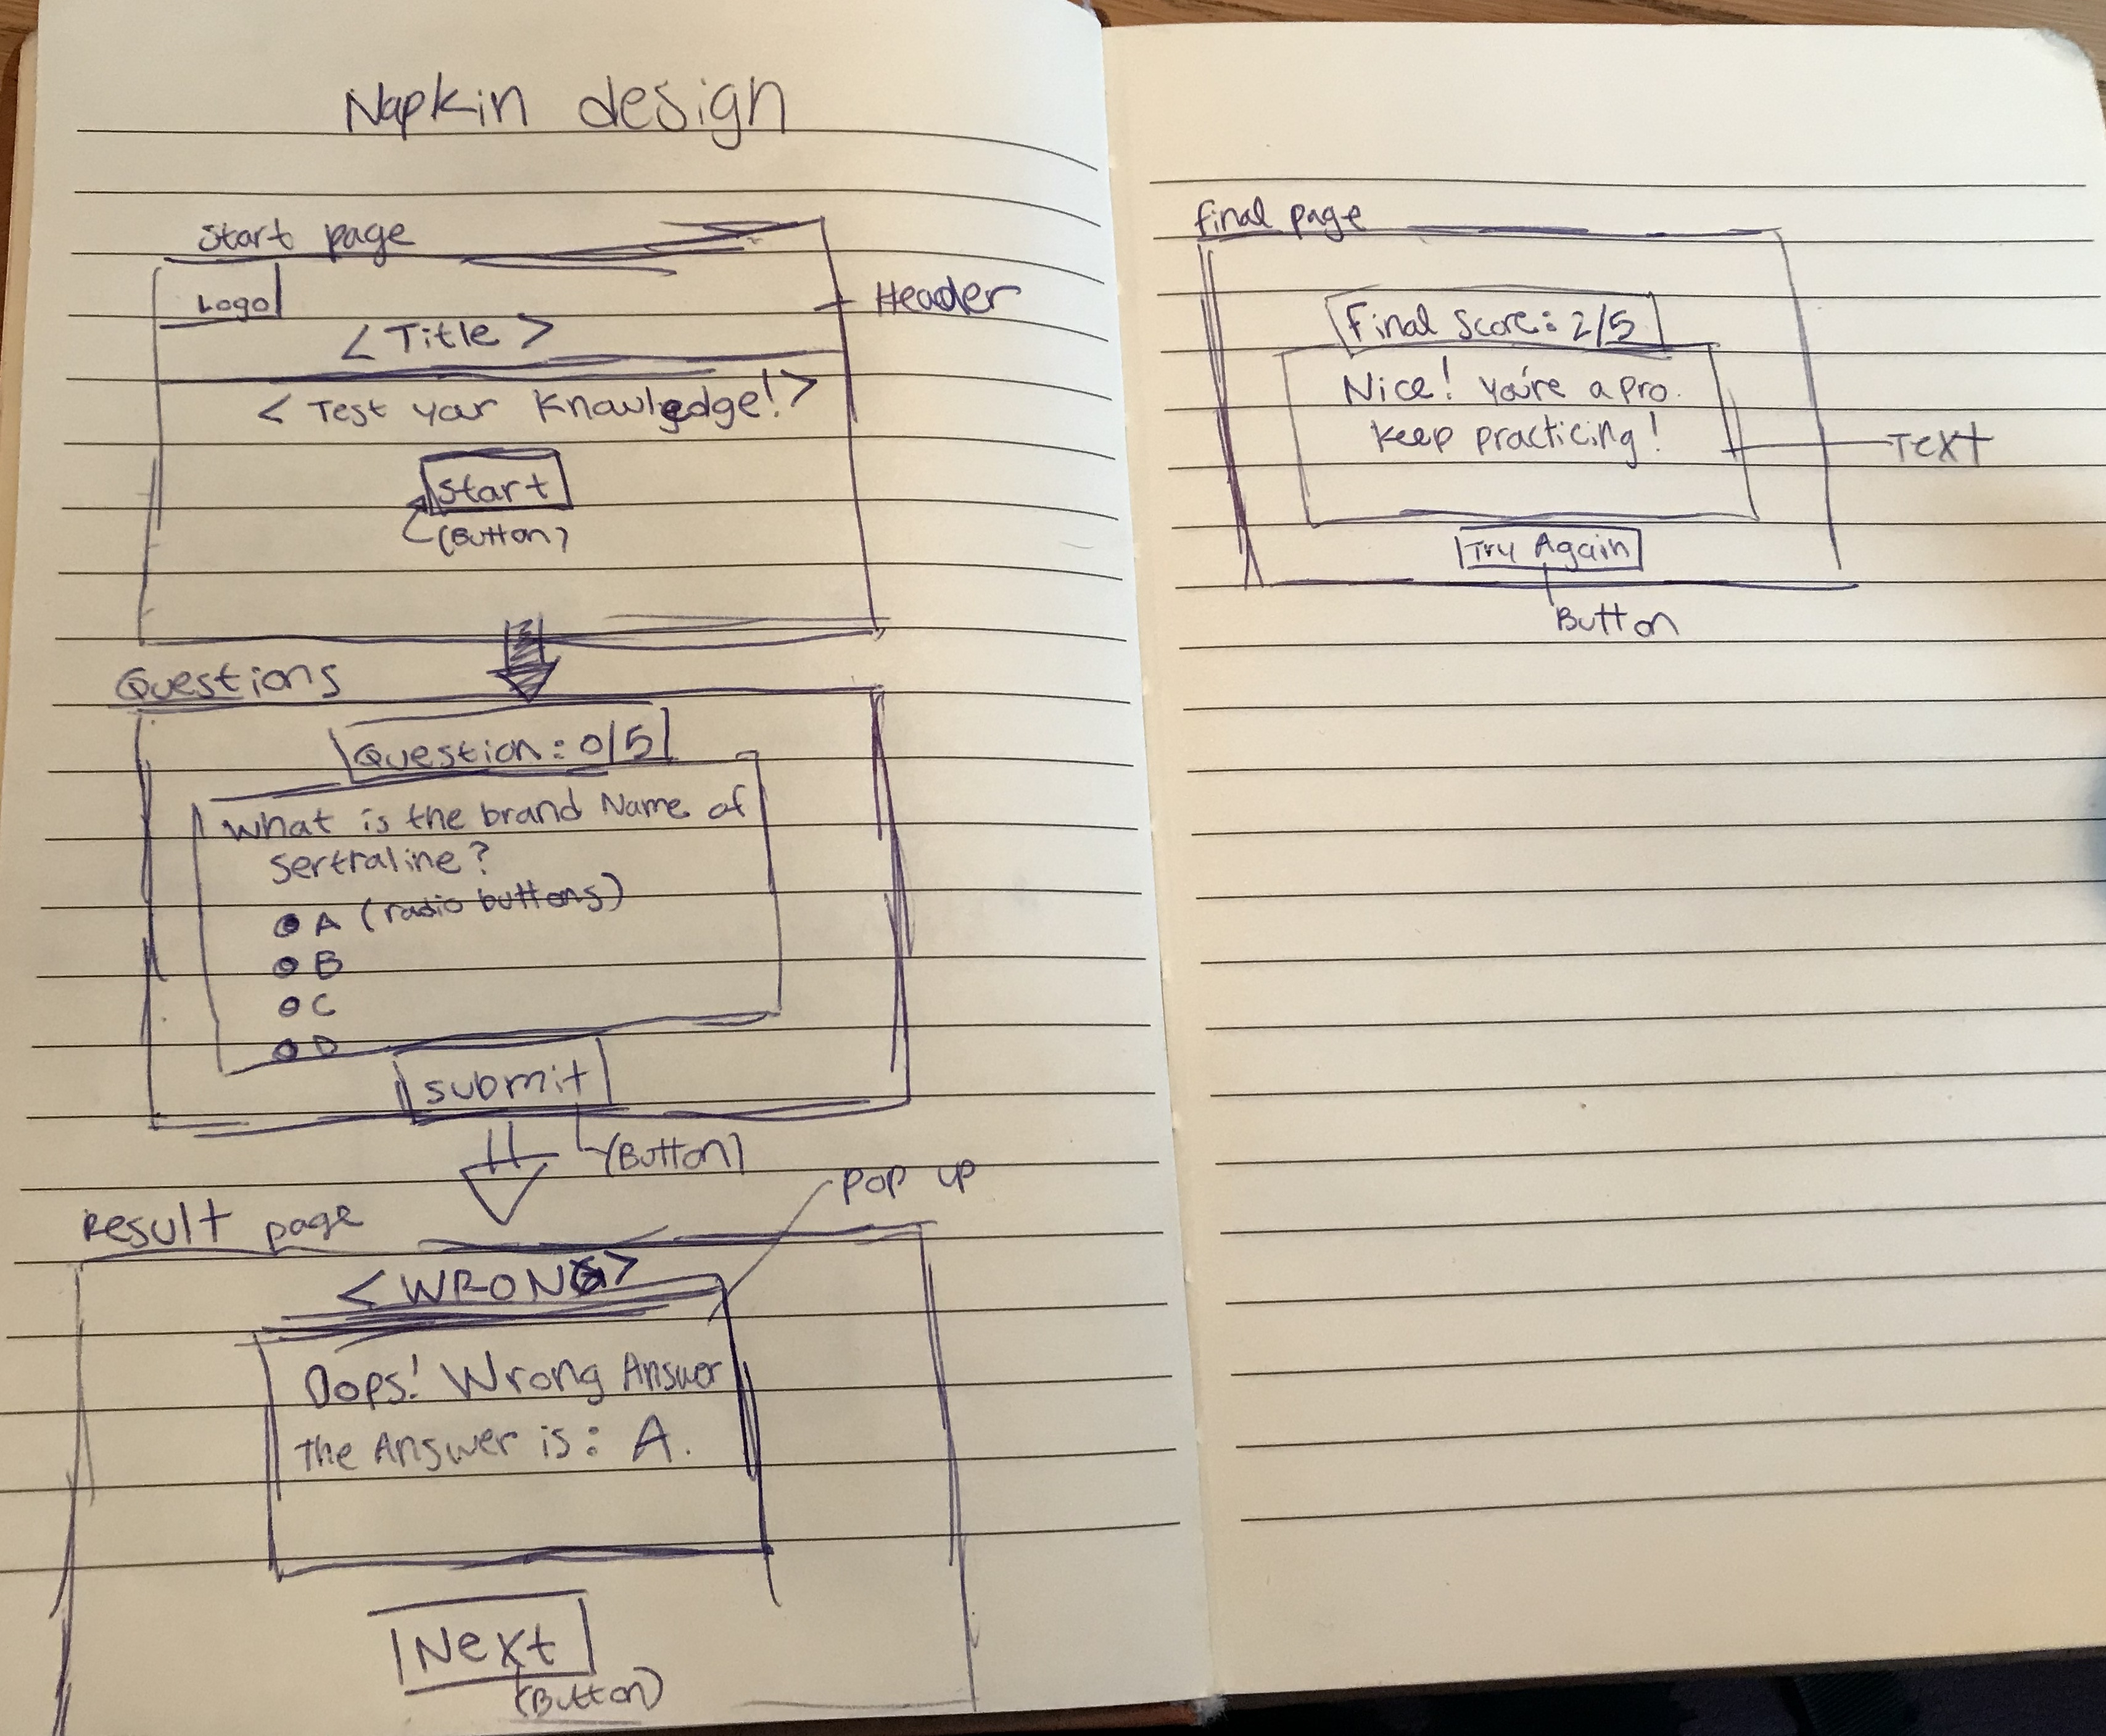 Napkin design
Start page
Logo
Header
< Title >
< Test your Knowledge! >
Start
(Button)
Questions
Question: 0/5
What is the brand Name of
Sertraline?
A (radio buttons)
B
C
D
submit
(Button)
Result page
Pop up
<WRONG>
Oops! Wrong Answer
The Answer is: A.
Next
(Button)
final page
Final Score: 2/5
Nice! You're a pro.
Keep practicing!
Text
Try Again
Button